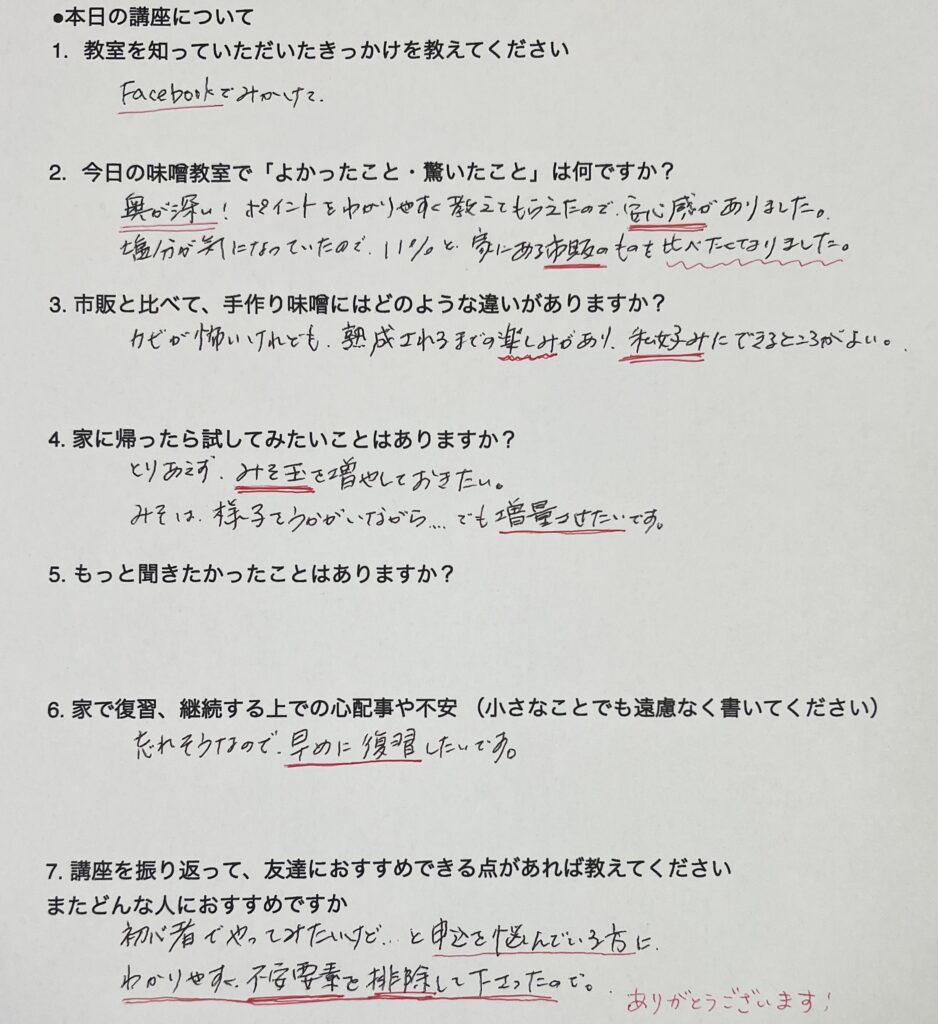 ●本日の講座について
1. 教室を知っていただいたきっかけを教えてください
Facebookでみかけて、
2. 今日の味噌教室で「よかったこと・驚いたこと」は何ですか？
奥が深い！ポイントをわかりやすく教えてもらえたので、安心感がありました。
塩分が気になっていたので、11%と、家にある市販のものを比べたくなりました。
3. 市販と比べて、手作り味噌にはどのような違いがありますか？
カビが怖いけれども、熟成されるまでの楽しみがあり、私好みにできるところがよい。
4. 家に帰ったら試してみたいことはありますか？
とりあえず、みそ玉を増やしておきたい。
みそは、様子をうかがいながら…。でも増量させたいです。
5. もっと聞きたかったことはありますか？
6. 家で復習、継続する上での心配事や不安 （小さなことでも遠慮なく書いてください）
忘れそうなので、早めに復習したいです。
7. 講座を振り返って、友達におすすめできる点があれば教えてください
またどんな人におすすめですか
初心者でやってみたいけど…と申込を悩んでいる方に、
わかりやすく、不安要素を排除して下さったので。
ありがとうございます！